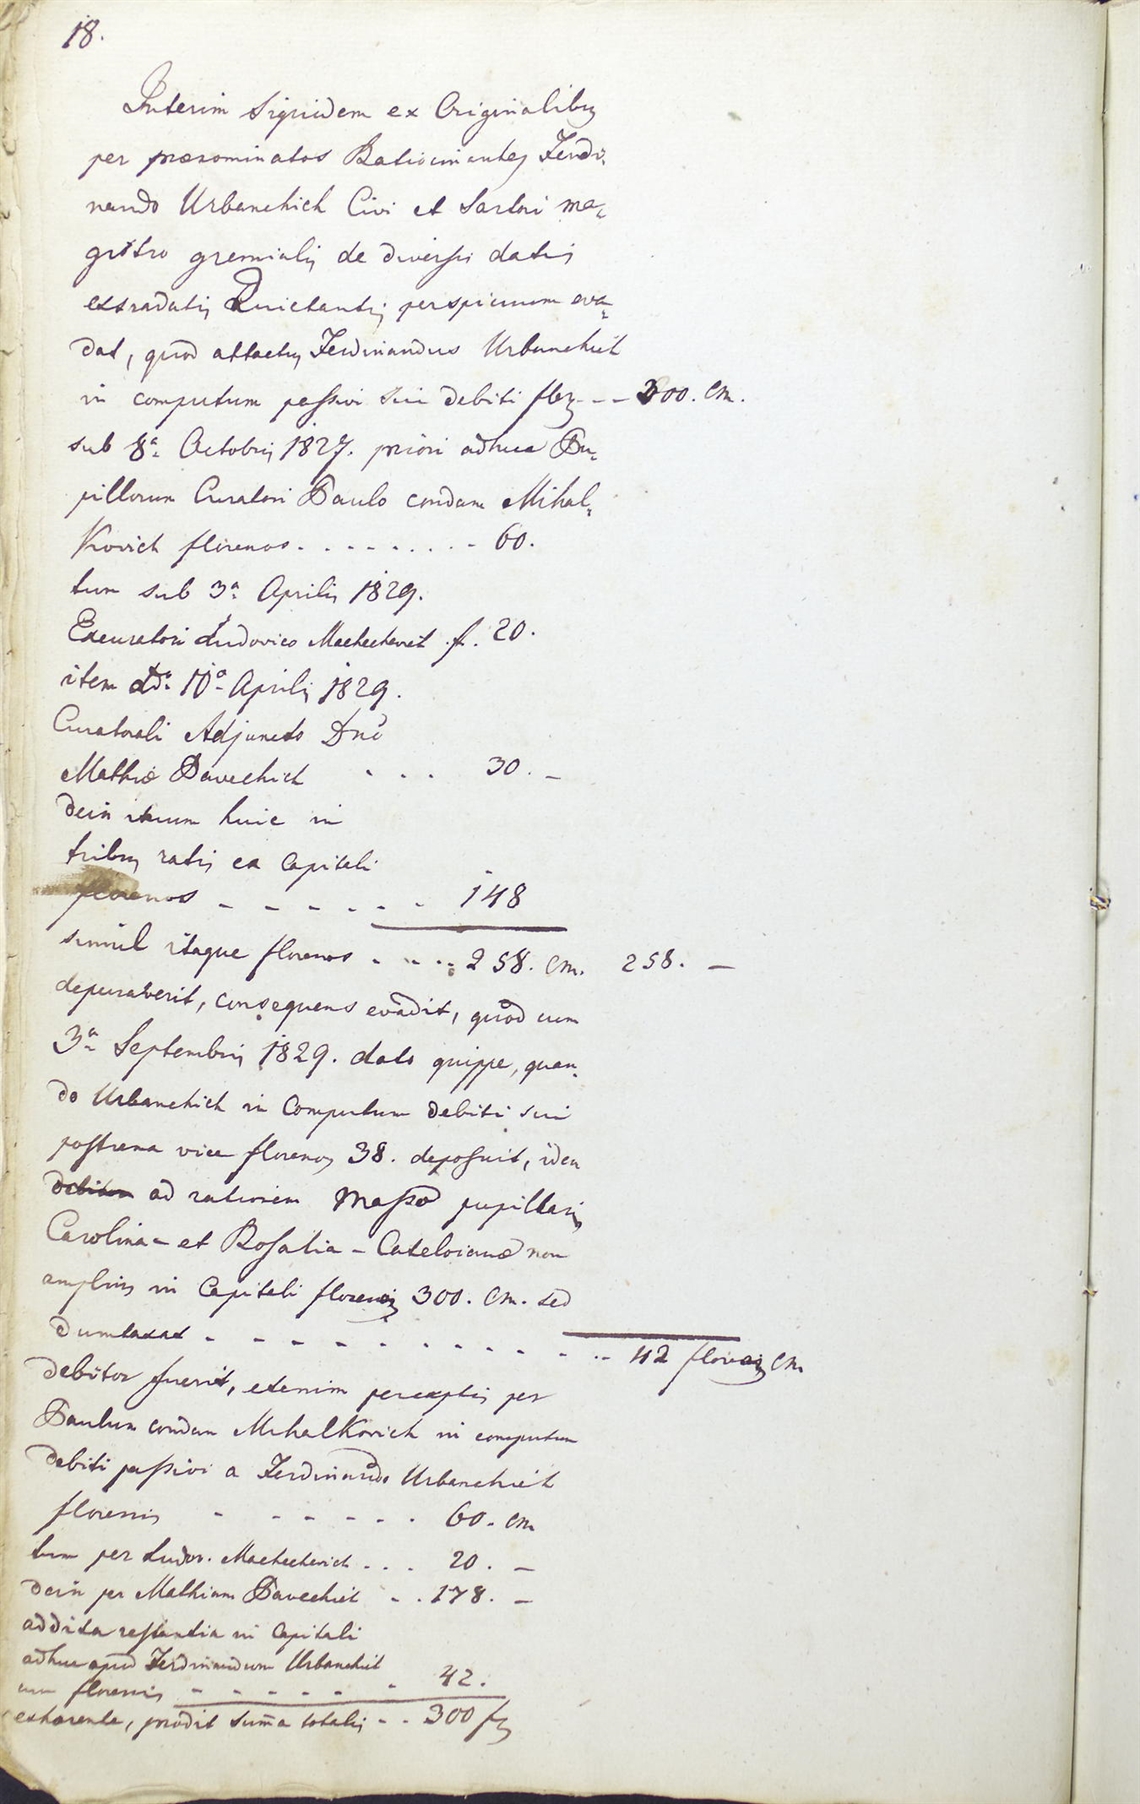 18.
Interim siquidem ex Originalibus
per praenominatos Ratiocinantes Ferdi-
nando Urbanchich Civi et Sartori ma-
gistro gremialis de diversis datis
extradatis Quietantiis perspicuum eva-
dat, quod attactus Ferdinandus Urbanchich
in computum passivi sui debiti flor. - - 300. Cm.
sub 8a Octobris 1827. priori adhuc Pu-
pillorum Curatori Paulo condam Mihal-
kovich florenos - - - - - - - - 60.
tum sub 3a Aprilis 1829.
Excuratori Ludovico Machechevich f. 20.
item dto 10a Aprilis 1829.
Curatorali Adjuncto Dno
Mathiae Pavechich - - - 30. -
dein iterum huic in
tribus ratis ex Capitali
florenos - - - - - - 148
simul itaque florenos - - - 258. Cm. 258. -
depuraverit, consequens evadit, quod cum
3a Septembris 1829. dato quippe, quan-
do Urbanchich in Computum debiti sui
postrema vice florenos 38. deposuit, idem
debitum ad rationem Massae pupillaris
Carolina- et Rosalia- Cateloianae non
amplius in Capitali florenis 300. Cm. sed
dumtaxat - - - - - - - - - - - 42 florenis Cm
debitor fuerit, etenim perceptis per
Paulum condam Mihalkovich in computum
debiti passivi a Ferdinando Urbanchich
florenis - - - - - - 60. Cm
tum per Ludov. Machechevich - - . 20. -
dein per Mathiam Pavechich - . 178. -
addita restantia in Capitali
adhuc apud Ferdinandum Urbanchich
cum florenis - - - - - - 42.
exhaerente, prodit summa totalis - - 300 f